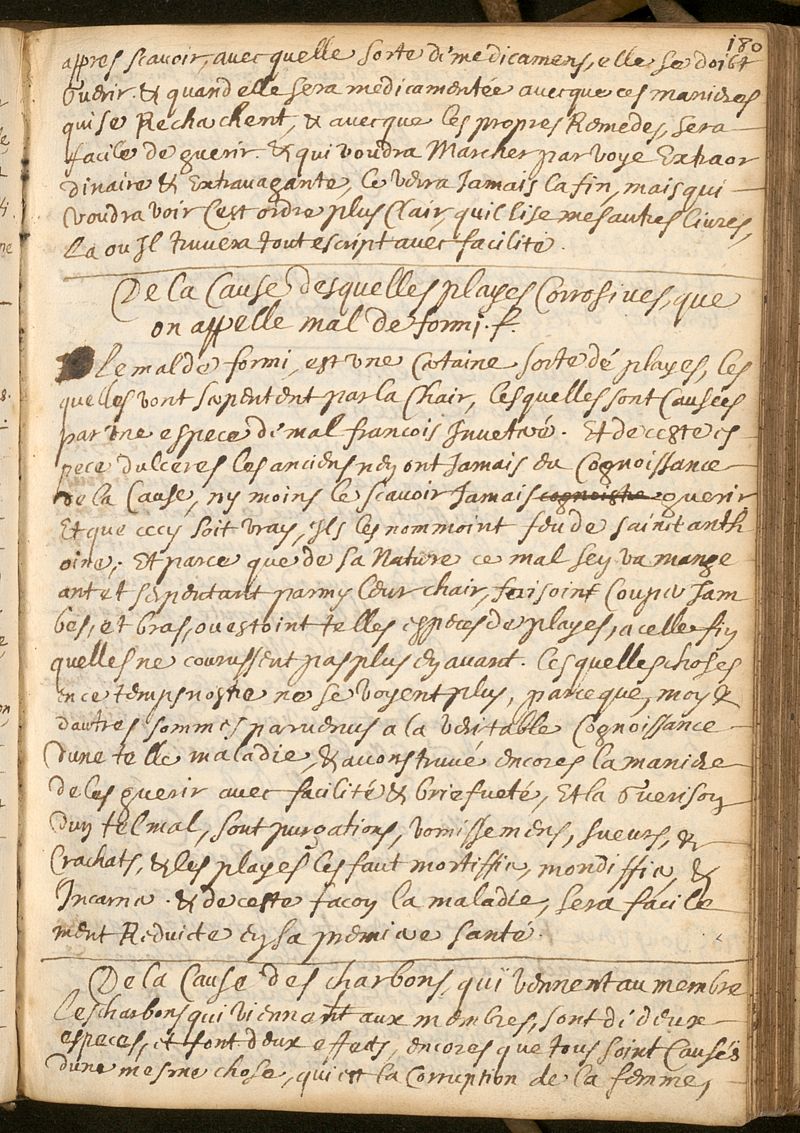 180
appres scavoir, avec quelle sorte di medicamens, elle se doibt
Guerir. & quand elle sera medicamentée avecque ces manieres
qui se Rechachent, & avecque les propres Remedes, sera
facile de guerir. & qui voudra Marcher par voye Extraor
dinaire & Extravagante, le verra Jamais la fin, mais qui
voudra voir cest ordre plus Clair, quil lise mes autres livres,
La ou Il truvera tout escript avec facilité.
De la Cause desquelles playes Corrosives, que
on appelle mal de formi. f.
Le mal de formi, est une Certaine sorte dé playes, les
quelles vont serpentent par la Chair, lesquelles sont Causées
par une espece di mal francois Inveteré. Et de ceste es
pece dulceres les anciens ney ont Jamais eu Cognoissance
de la Cause, ny moins le scavoir Jamais cognoistre guerir
Et que cecy soit vray, Ils les nommoint feu de sainct anth
oine, Et parce que de sa Nature ce mal sey va mange
ant et serpentant parmy leur chair, faisoint Couper Jam
bes, et bras, ou estoint telles especes de playes, a celle fin
quelles ne courussent pas plus ey avant. Lesquelles choses
ence temps nostre ne se voyent plus, parce que, moy &
dautres sommes parvenus a la veritable Cognoissance
dune telle maladie, & avons truvé encores la maniere
de les guerir avec facilité & briefueté, Et la Guerisoy
duy tel mal, sont purgations, vomissemens, sueurs, &
Crachats, & les playes les faut mortiffier, mondiffier, &
Incarner. & de ceste facoy la maladie, sera facile
ment Reduicte ey sa premiere santé.
De la Cause des charbons, qui vennent au membre
Les charbons qui viennant aux membres, sont di deux
especes, et font deux effects, encores que tous soint Causés
dune mesme chose, qui est la Corruption de la femme,